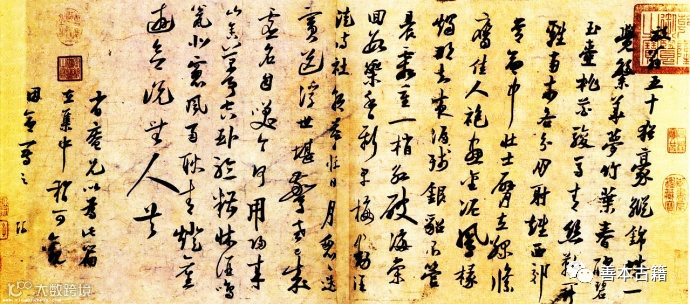 放翁五十猶豪縱錦城一
覺繁華夢竹葉春醪碧
玉壺桃花駿馬青絲鞚鬥
雞南市各分朋射雉西郊
常命中壯士臂立綠絛
鷹佳人袍畫金泥鳳椽
燭那知夜漏殘銀貂不管
晨霜重一梢紅破海棠
回數蕊香新早梅動酒
徒詩社朝暮忙日月匆匆迭
賓送浮世堪驚老已成
虛名自笑今何用歸來
山舍萬事空臥聽糟床酒鳴
甕北窗風雨耿青燈舊
遊欲說無人共
省庵兄以為此篇
在集中稍可觀
因命寫之 游
大数跨境
善本古籍